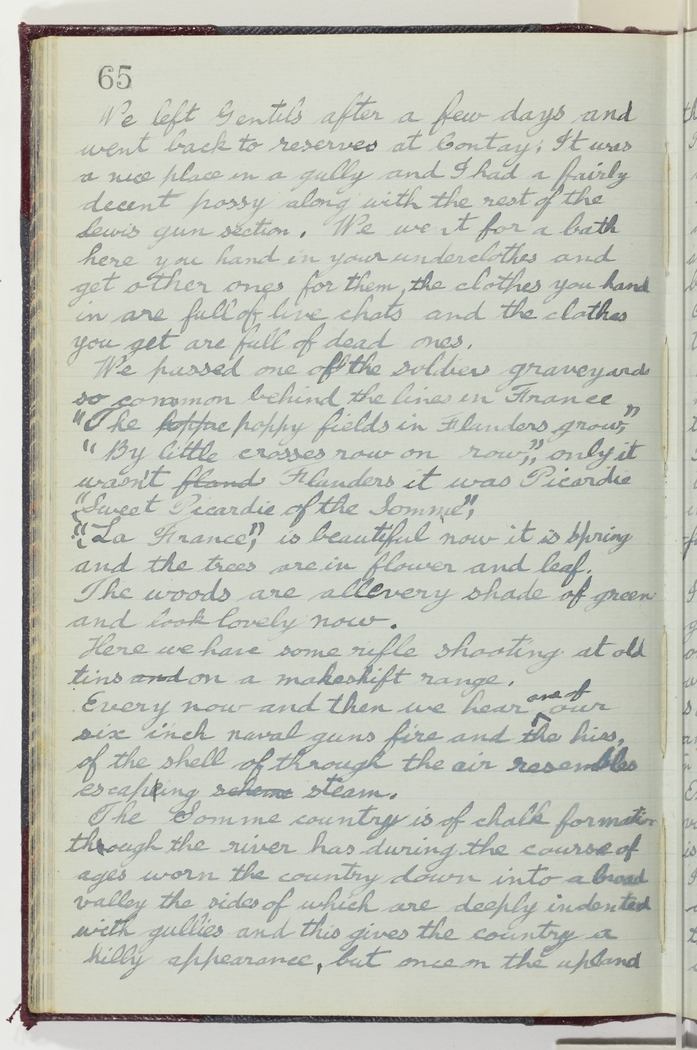 65
We left Gentils after a few days and
went back to reserves at Contay; It was
a nice place in a gully and I had a fairly
decent possy along with the rest of the
Lewis gun section. We went for a bath
here you hand in your underclothes and
get other ones for them, the clothes you hand
in are full of live chats and the clothes
you get are full of dead ones.
We passed one of the soldiers graveyards
so common behind the lines in France
"The poppy fields in Flanders grow,"
"By little crosses row on row," only it
wasn't Flanders it was Picardie
"Sweet Picardie of the Somme",
"La France", is beautiful now it is Spring
and the trees are in flower and leaf.
The woods are all every shade of green
and look lovely now.
Here we have some rifle shooting at old
tins and on a makeshift range.
Every now and then we hear one of our
six inch naval guns fire and the hiss,
of the shell of through the air resembles
escaping steam.
The Somme country is of chalk formation
through the river has during the course of
ages worn the country down into a broad
valley the sides of which are deeply indented
with gullies and this gives the country a
hilly appearance, but once on the upland